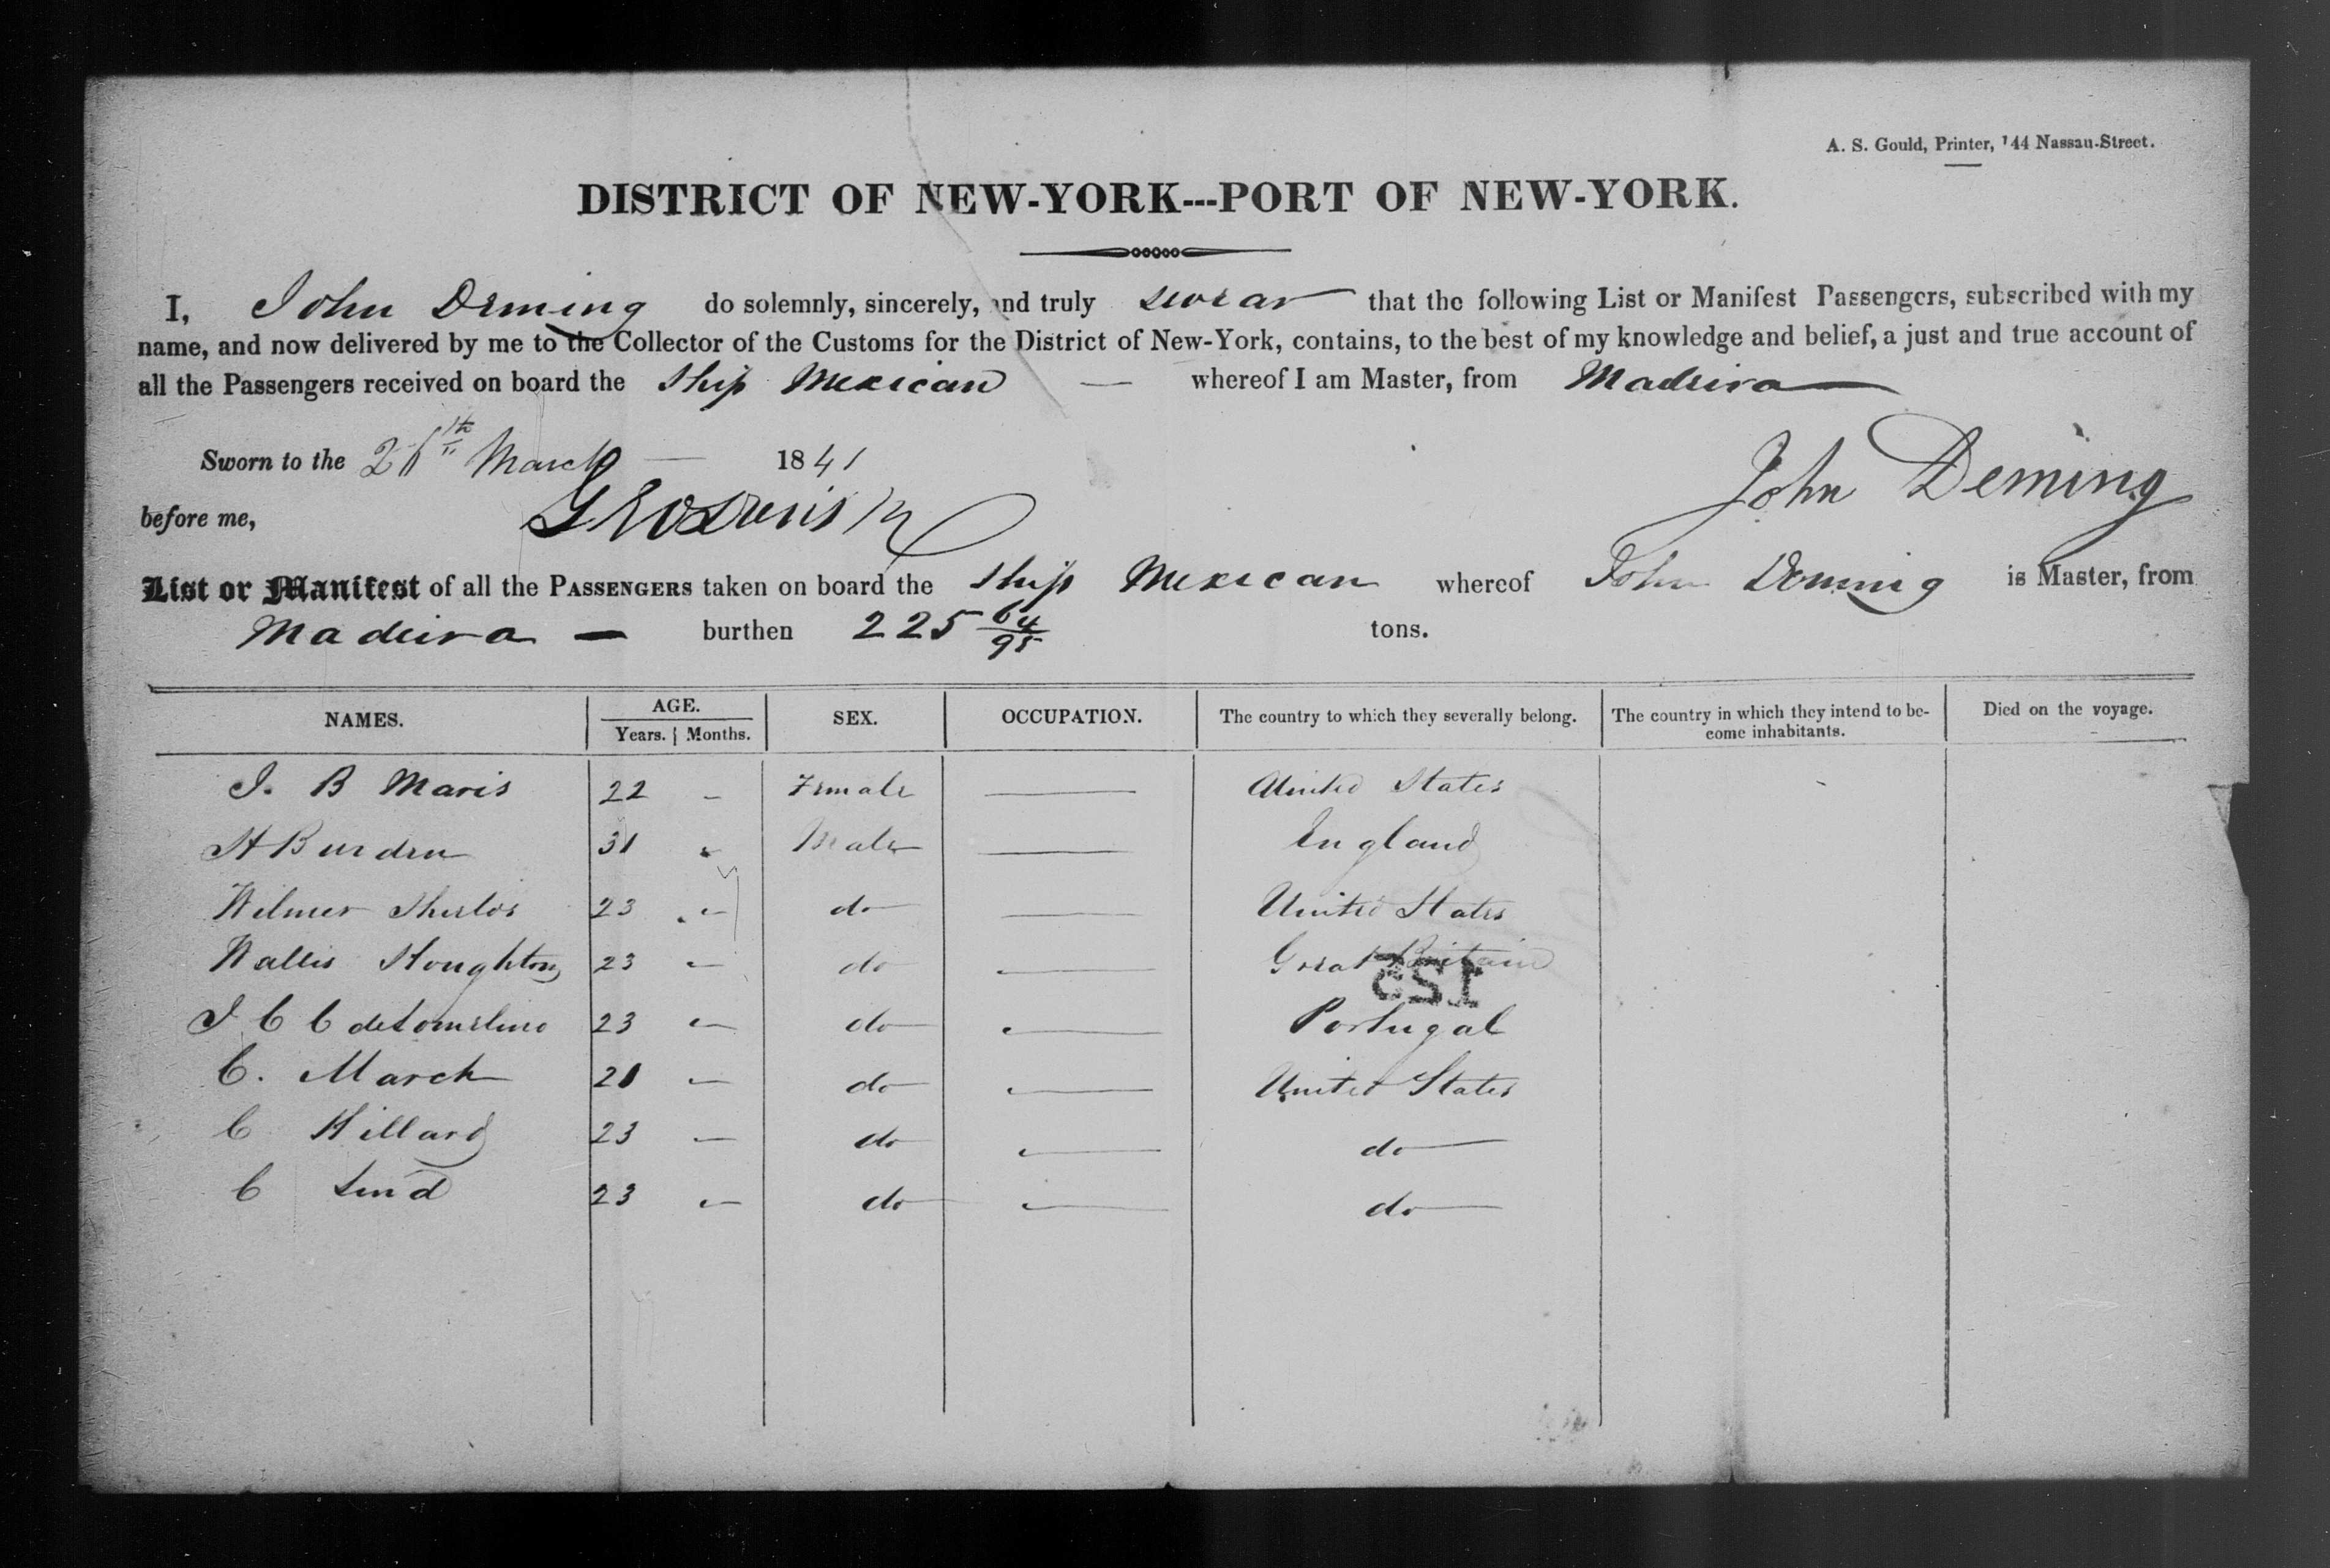 A. S. Gould, Printer, 144 Nassau-Street.
DISTRICT OF NEW-YORK---PORT OF NEW-YORK.
I, John Deming do solemnly, sincerely, and truly swear that the following List or Manifest Passengers, subscribed with my
name, and now delivered by me to the Collector of the Customs for the District of New-York, contains, to the best of my knowledge and belief, a just and true account of
all the Passengers received on board the Ship Mexican — whereof I am Master, from Madeira
Sworn to the 26th March 1841
John Deming
before me,
List or Manifest of all the PASSENGERS taken on board the Ship Mexican whereof John Deming is Master, from
Madeira — burthen 225 64/95 tons.
NAMES. AGE. SEX. OCCUPATION. The country to which they severally belong. The country in which they intend to be- Died on the voyage.
Years. Months. come inhabitants.
J. B Maris 22 - Female — United States
H Burden 31 Male — England
Wilmer 23 do — United States
Wallis Houghton 23 do — Great Britain
152
J C C 23 do — Portugal
C. March 21 do — United States
C Hillard 23 do — do
C Lind 23 do — do